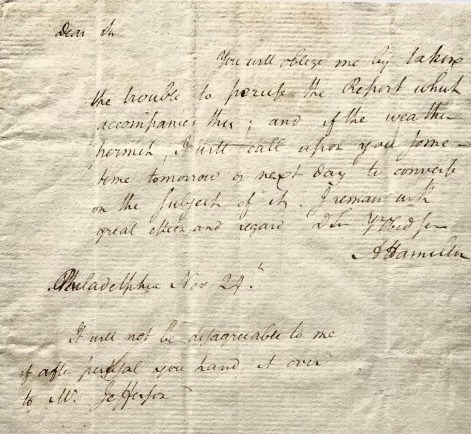 Dear Sir
You will oblige me by taking
the trouble to peruse the Report which
accompanies this; and if the weather
permit, I will call upon you some-
time tomorrow or next day to converse
on the subject of it. I remain with
great esteem and regard D Sir Yr Obed ser
A Hamilton
Philadelphia Nov 24th
It will not be disagreeable to me
if after perusal you hand it over
to Mr. Jefferson